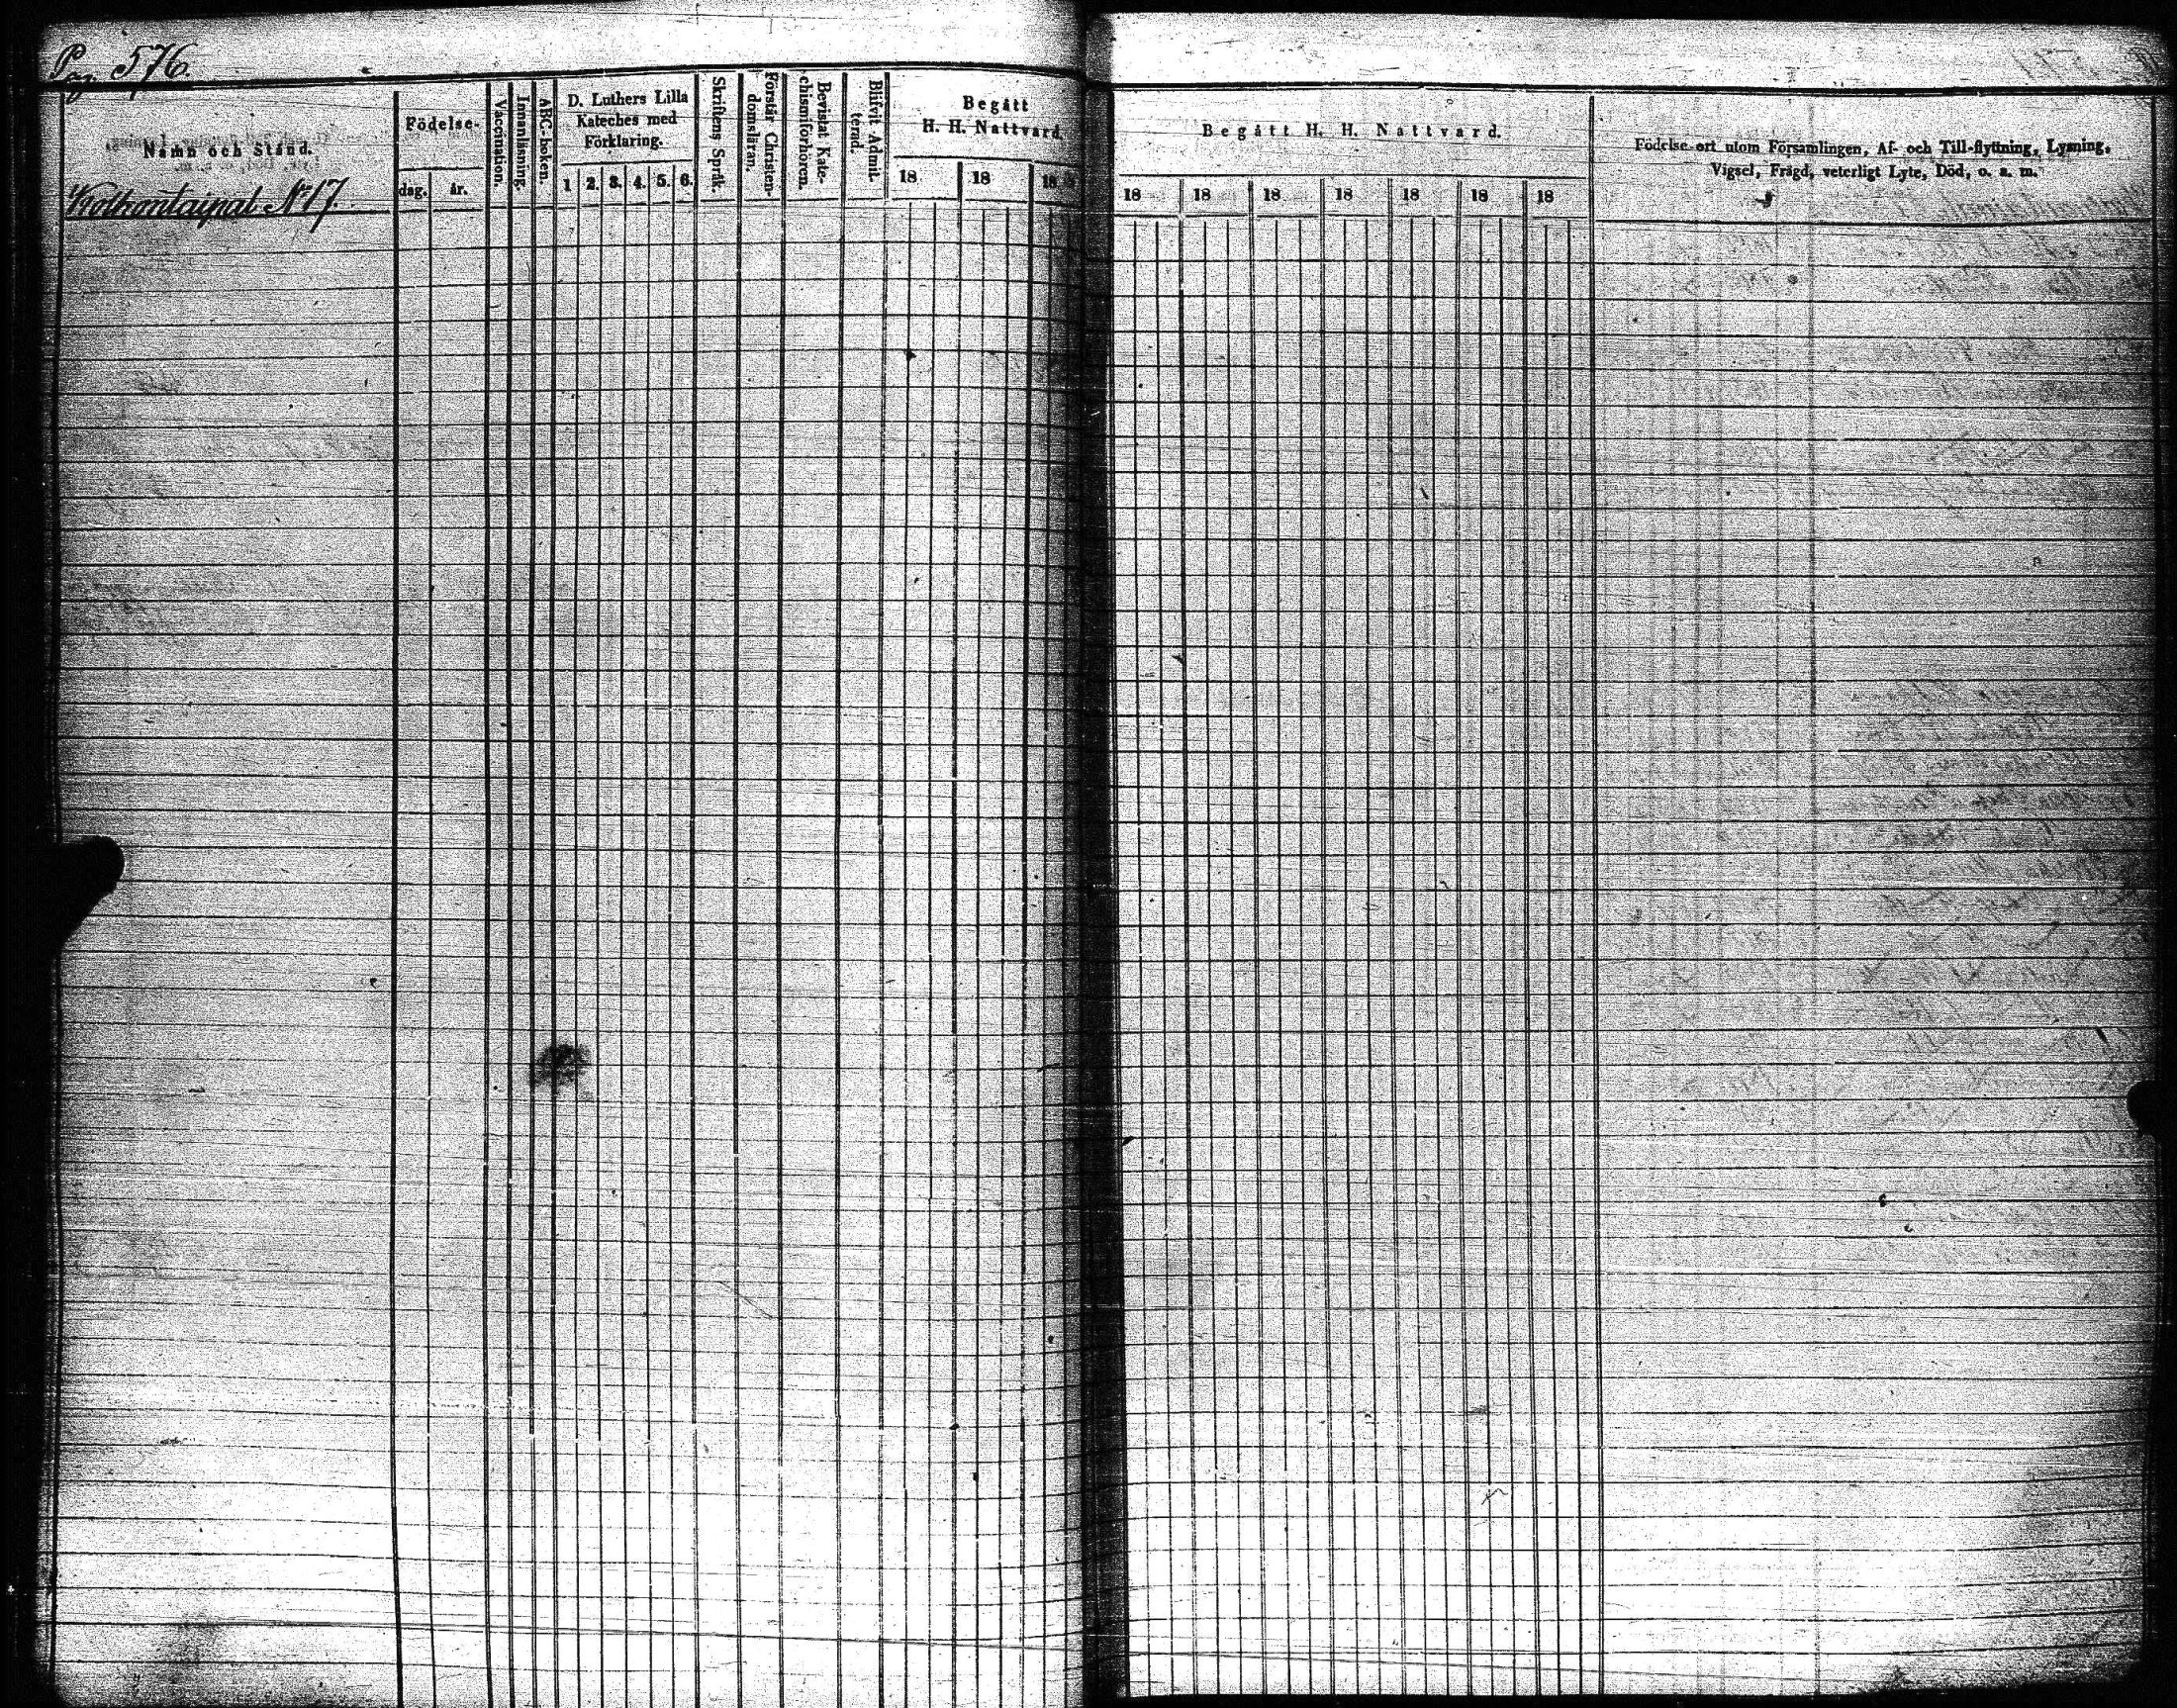 Pag. 576.
Namn och Stånd.
Kolkontaipal N:o 17.
Födelse-
dag. år.
Vaccination.
Innanläsning.
ABC-boken.
D. Luthers Lilla
Kateches med
Förklaring.
1 2. 3. 4. 5. 6.
Skriftens Språk.
Förstår Christen-
domsläran.
Bevistat Kate-
chismiförhören.
Blifvit Admit-
terad.
Begått
H. H. Nattvard.
18 18 18
Begått H. H. Nattvard.
18 18 18 18 18 18 18
Födelse-ort utom Församlingen, Af- och Till-flyttning, Lysning,
Vigsel, Frägd, veterligt Lyte, Död, o. s. m.